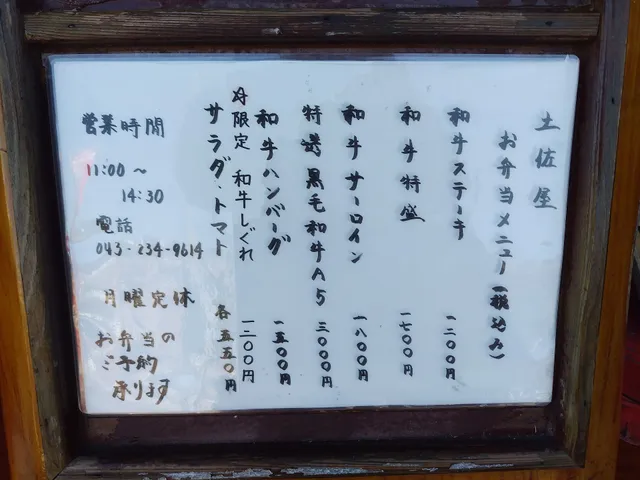 土佐屋
お弁当メニュー(税込み)
和牛ステーキ 一二〇〇円
和牛特盛 一七〇〇円
和牛サーロイン 一八〇〇円
特選黒毛和牛A5 三〇〇〇円
和牛ハンバーグ 一五〇〇円
限定 和牛しぐれ 一二〇〇円
サラダ・トマト 各五五〇円
営業時間
11:00〜
14:30
電話
043-234-9614
月曜定休
お弁当の
ご予約
承ります